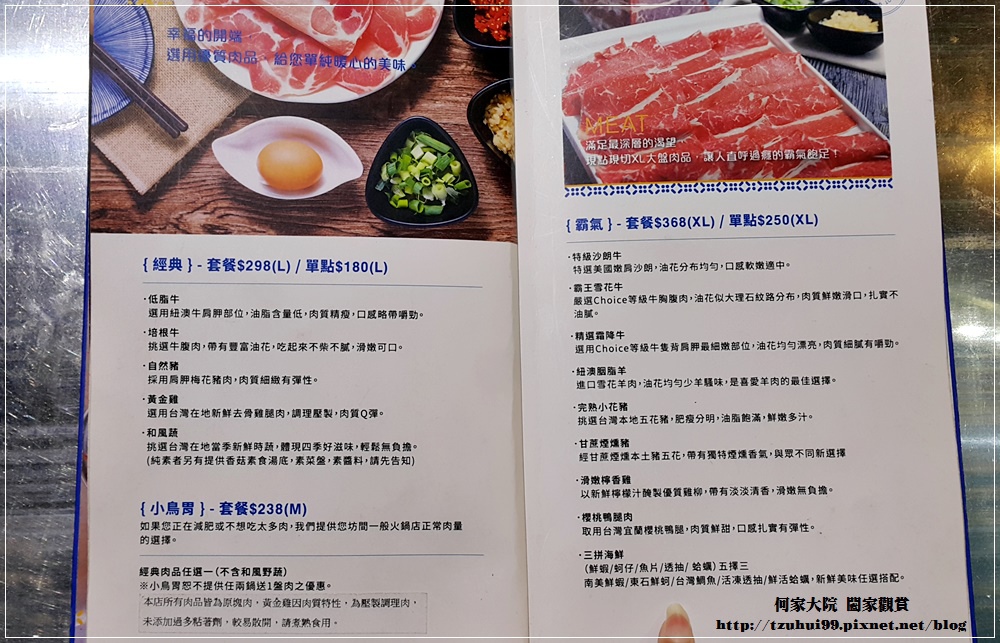 幸福的開端
選用優質肉品，給您單純暖心的美味。
{ 經典 } - 套餐$298(L) / 單點$180(L)
·低脂牛
選用紐澳牛肩胛部位，油脂含量低，肉質精瘦，口感略帶嚼勁。
·培根牛
挑選牛腹肉，帶有豐富油花，吃起來不柴不膩，滑嫩可口。
·自然豬
採用肩胛梅花豬肉，肉質細緻有彈性。
·黃金雞
選用台灣在地新鮮去骨雞腿肉，調理壓製，肉質Q彈。
·和風蔬
挑選台灣在地當季新鮮時蔬，體現四季好滋味，輕鬆無負擔。
(純素者另有提供香菇素食湯底，素菜盤，素醬料，請先告知)
{ 小鳥胃 } - 套餐$238(M)
如果您正在減肥或不想吃太多肉，我們提供您坊間一般火鍋店正常肉量
的選擇。
經典肉品任選一(不含和風野蔬)
※小鳥胃恕不提供任兩鍋送1盤肉之優惠。
本店所有肉品皆為原塊肉，黃金雞因肉質特性，為壓製調理肉，
未添加過多粘著劑，較易散開，請煮熟食用。
MEAT
滿足最深層的渴望
現點現切XL大盤肉品，讓人直呼過癮的霸氣飽足！
{ 霸氣 } - 套餐$368(XL) / 單點$250(XL)
·特級沙朗牛
特選美國嫩肩沙朗，油花分布均勻，口感軟嫩適中。
·霸王雪花牛
嚴選Choice等級牛胸腹肉，油花似大理石紋路分布，肉質鮮嫩滑口，扎實不
油膩。
·精選霜降牛
選用Choice等級牛隻背肩胛最細嫩部位，油花均勻漂亮，肉質細膩有嚼勁。
·紐澳胭脂羊
進口雪花羊肉，油花均勻少羊騷味，是喜愛羊肉的最佳選擇。
·完熟小花豬
挑選台灣本地五花豬，肥瘦分明，油脂飽滿，鮮嫩多汁。
·甘蔗煙燻豬
經甘蔗煙燻本土豬五花，帶有獨特煙燻香氣，與眾不同新選擇
·滑嫩檸香雞
以新鮮檸檬汁醃製優質雞柳，帶有淡淡清香，滑嫩無負擔。
·櫻桃鴨腿肉
取用台灣宜蘭櫻桃鴨腿，肉質鮮甜，口感扎實有彈性。
·三拼海鮮
(鮮蝦/蚵仔/魚片/透抽/ 蛤蠣) 五擇三
南美鮮蝦/東石鮮蚵/台灣鯛魚/活凍透抽/鮮活蛤蠣，新鮮美味任選搭配。
何家大院 闔家觀賞
http://tzuhui99.pixnet.net/blog